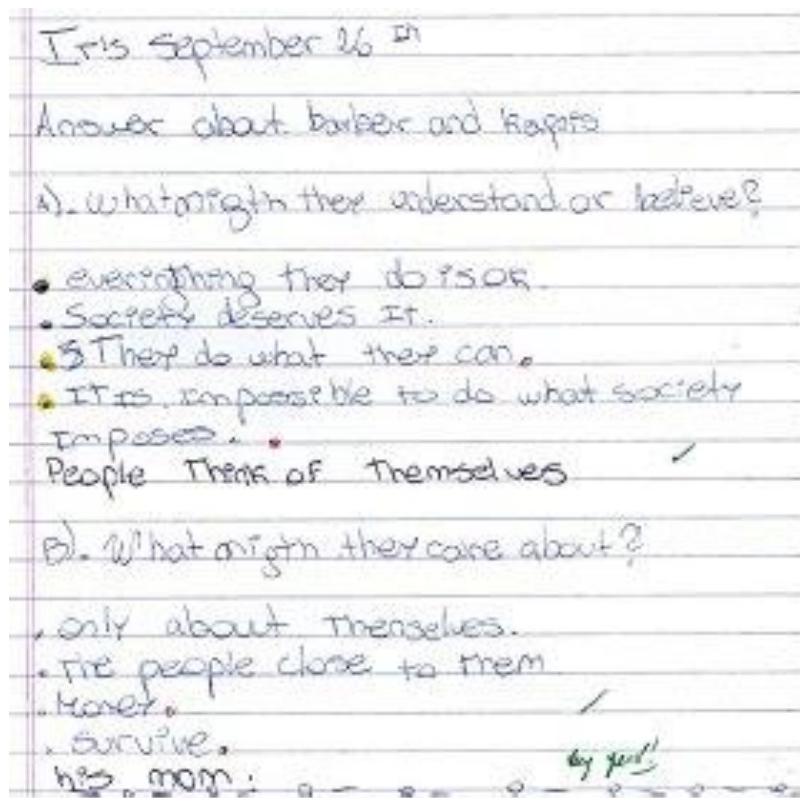 Iris September 26 th
Answer about barber and
A). what migth they understand or believe?
everinthing they do is OK.
Society deserves It.
They do what they can.
IT IS impossible to do what society
Imposes.
People Think of Themselves
B). What migth they care about?
only about Themselves.
The people close to them
Money.
survive.
his mom.